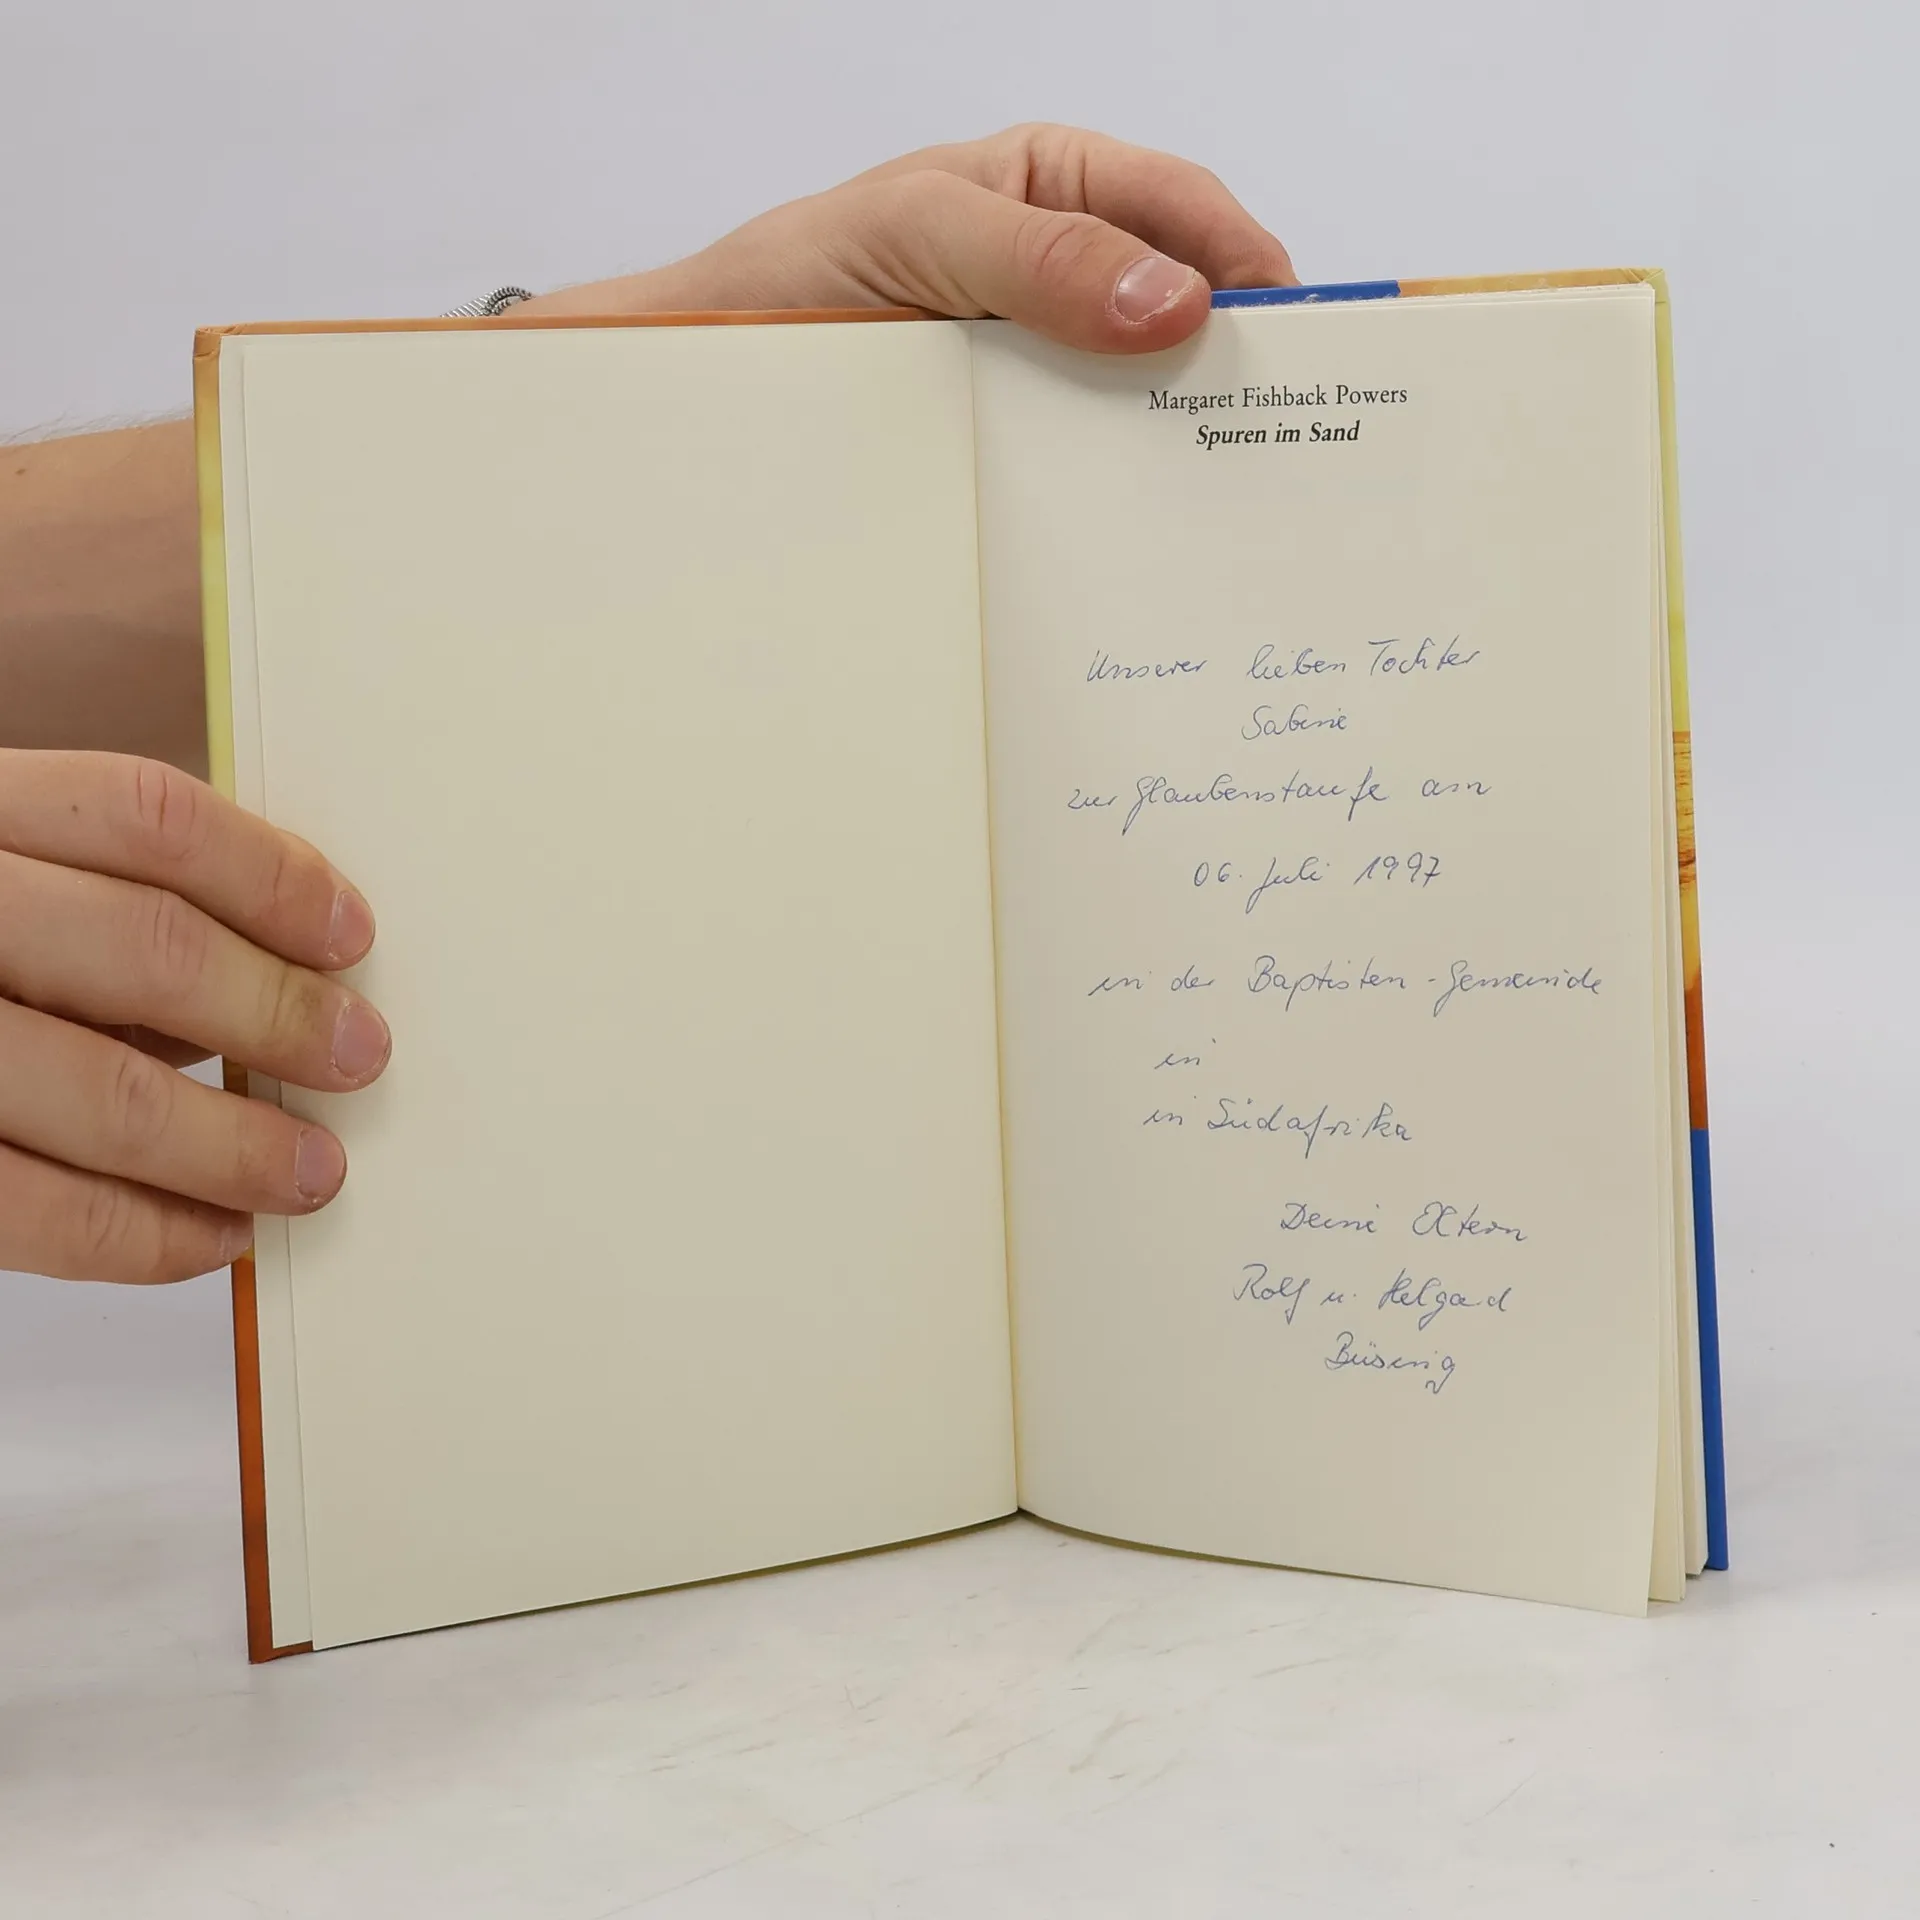 Margaret Fishback Powers
Spuren im Sand
Unserer lieben Tochter
Sabine
zur Glaubenstaufe am
06. Juli 1997
in der Baptisten-Gemeinde
in
in Südafrika
Deine Eltern
Rolf u. Helgard
Büsing